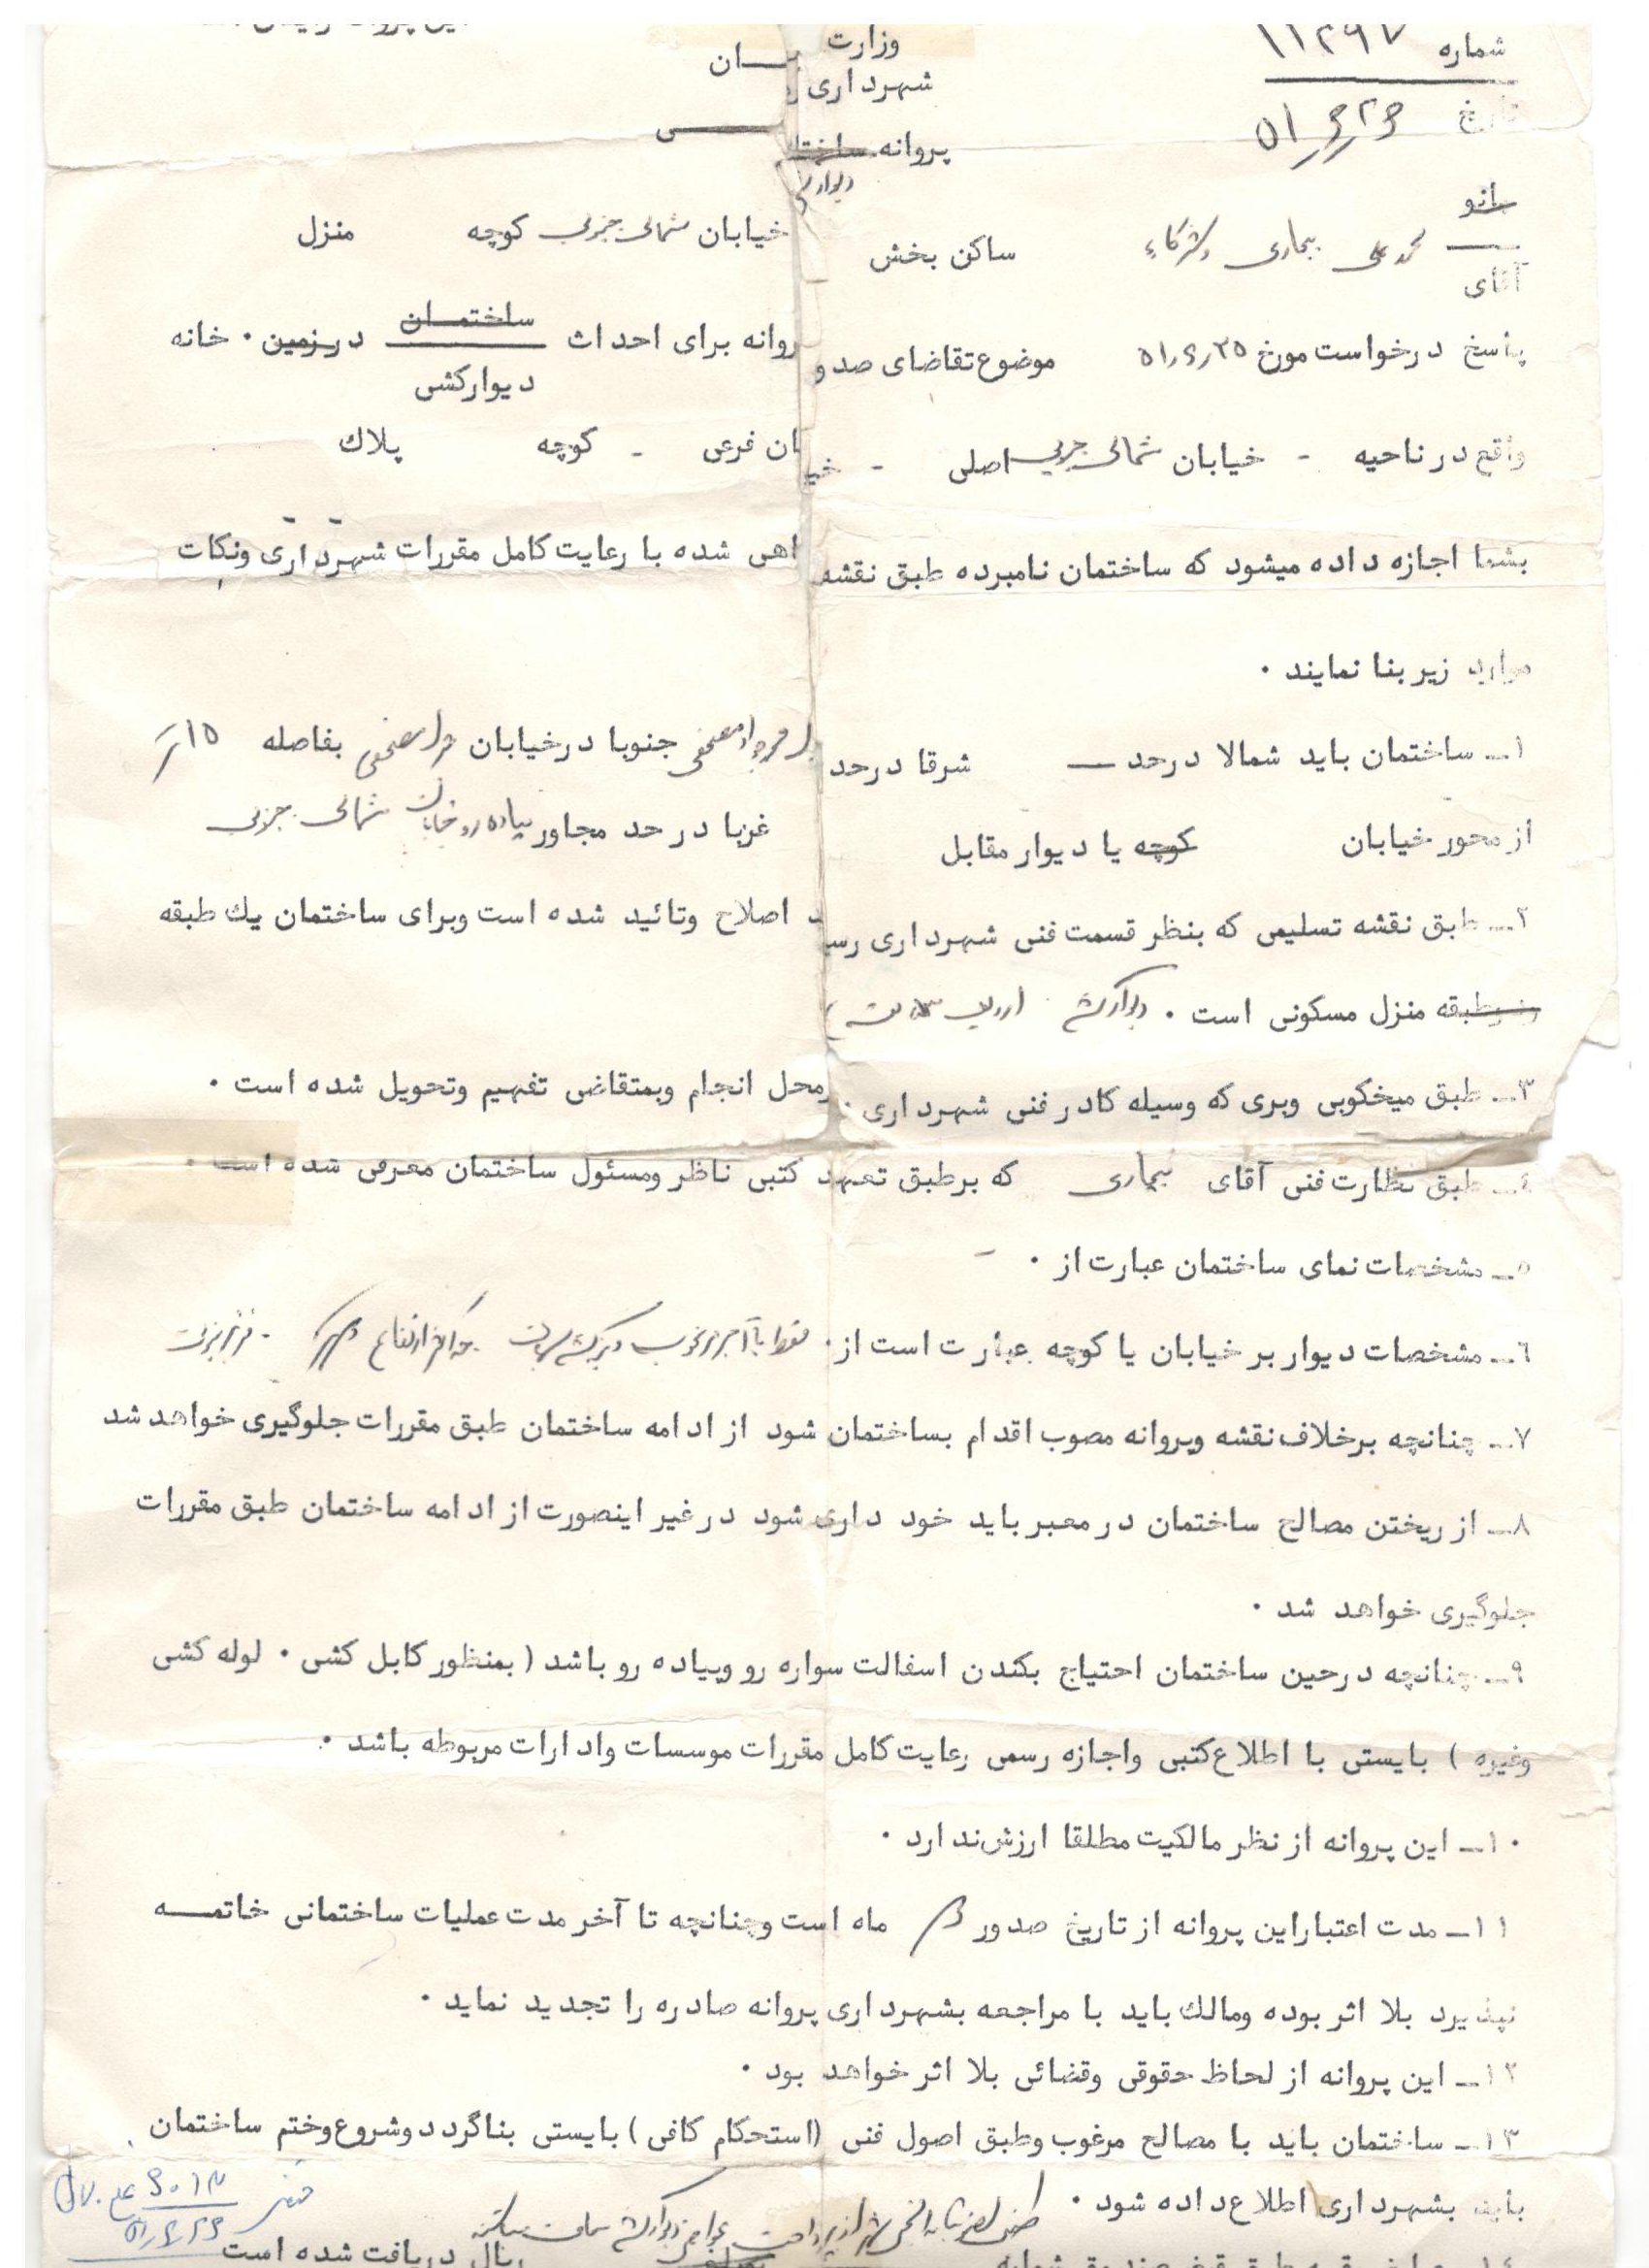 شماره ۱۱۲۹۷
وزارت
شهرداری
پروانه ساختمانی
دیوارکشی
بانو
آقای محمد علی بیماری و شرکاء ساکن بخش خیابان شمالی جنوبی کوچه منزل
پاسخ درخواست مورخ موضوع تقاضای صدور پروانه برای احداث ساختمان در زمین ۰ خانه
دیوارکشی
واقع در ناحیه - خیابان شمالی جنوبی اصلی - خیابان فرعی - کوچه پلاك
بشما اجازه داده میشود که ساختمان نامبرده طبق نقشه اهی شده با رعایت کامل مقررات شهرداری ونکات
موارد زیر بنا نمایند ۰
۱ـ ساختمان باید شمالا درحد — شرقا درحد جنوبا درخیابان بفاصله ۱۵
از محور خیابان کوچه یا دیوار مقابل غربا در حد مجاور پیاده رو خیابان شمالی جنوبی
۲ـ طبق نقشه تسلیمی که بنظر قسمت فنی شهرداری رسید اصلاح وتائید شده است وبرای ساختمان یك طبقه
طبقه منزل مسکونی است ۰ دیوارکشی
۳ـ طبق میخکوبی وبری که وسیله کادر فنی شهرداری درمحل انجام وبمتقاضی تفهیم وتحویل شده است ۰
٤ـ طبق نظارت فنی آقای بیماری که برطبق تعهد کتبی ناظر ومسئول ساختمان معرفی شده است ۰
۵ـ مشخصات نمای ساختمان عبارت از ۰ -
٦ـ مشخصات دیوار بر خیابان یا کوچه عبارت است از ۰ فقط با آجر مرغوب حداکثر ارتفاع
۷ـ چنانچه برخلاف نقشه وپروانه مصوب اقدام بساختمان شود از ادامه ساختمان طبق مقررات جلوگیری خواهد شد
۸ـ از ریختن مصالح ساختمان در معبر باید خود داری شود در غیر اینصورت از ادامه ساختمان طبق مقررات
جلوگیری خواهد شد ۰
۹ـ چنانچه درحین ساختمان احتیاج بکندن اسفالت سواره رو وپیاده رو باشد ( بمنظور کابل کشی ۰ لوله کشی
وغیره ) بایستی با اطلاع کتبی واجازه رسمی رعایت کامل مقررات موسسات وادارات مربوطه باشد ۰
۱۰ـ این پروانه از نظر مالکیت مطلقا ارزش ندارد ۰
۱۱ـ مدت اعتبار این پروانه از تاریخ صدور ماه است وچنانچه تا آخر مدت عملیات ساختمانی خاتمـه
نپذیرد بلا اثر بوده ومالك باید با مراجعه بشهرداری پروانه صادره را تجدید نماید ۰
۱۲ـ این پروانه از لحاظ حقوقی وقضائی بلا اثر خواهد بود ۰
۱۳ـ ساختمان باید با مصالح مرغوب وطبق اصول فنی (استحکام کافی ) بایستی بناگردد وشروع وختم ساختمان
باید بشهرداری اطلاع داده شود ۰
ریال دریافت شده است